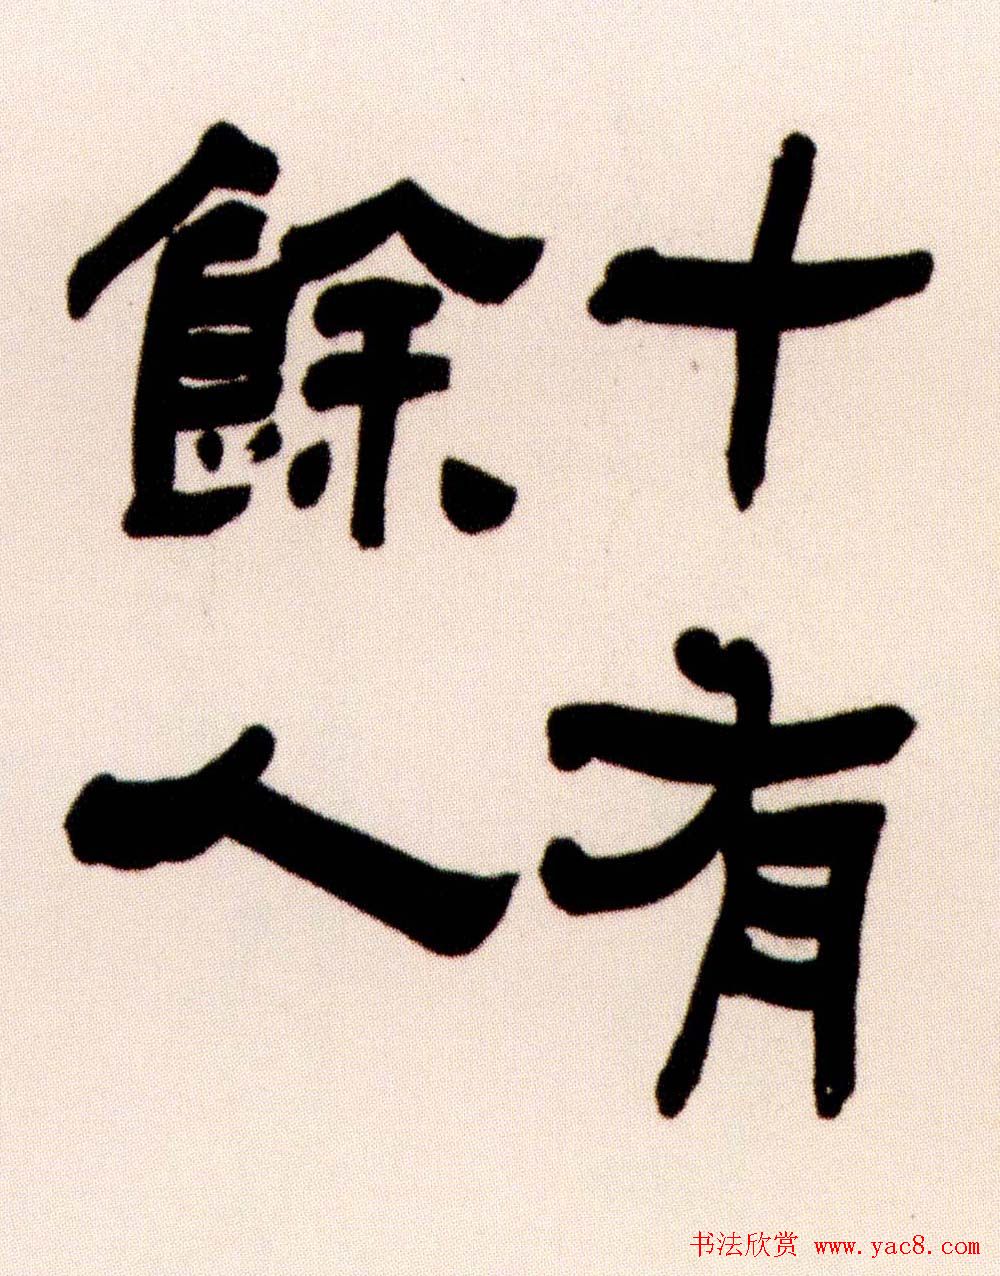 十有
餘人
书法欣赏 www.yac8.com